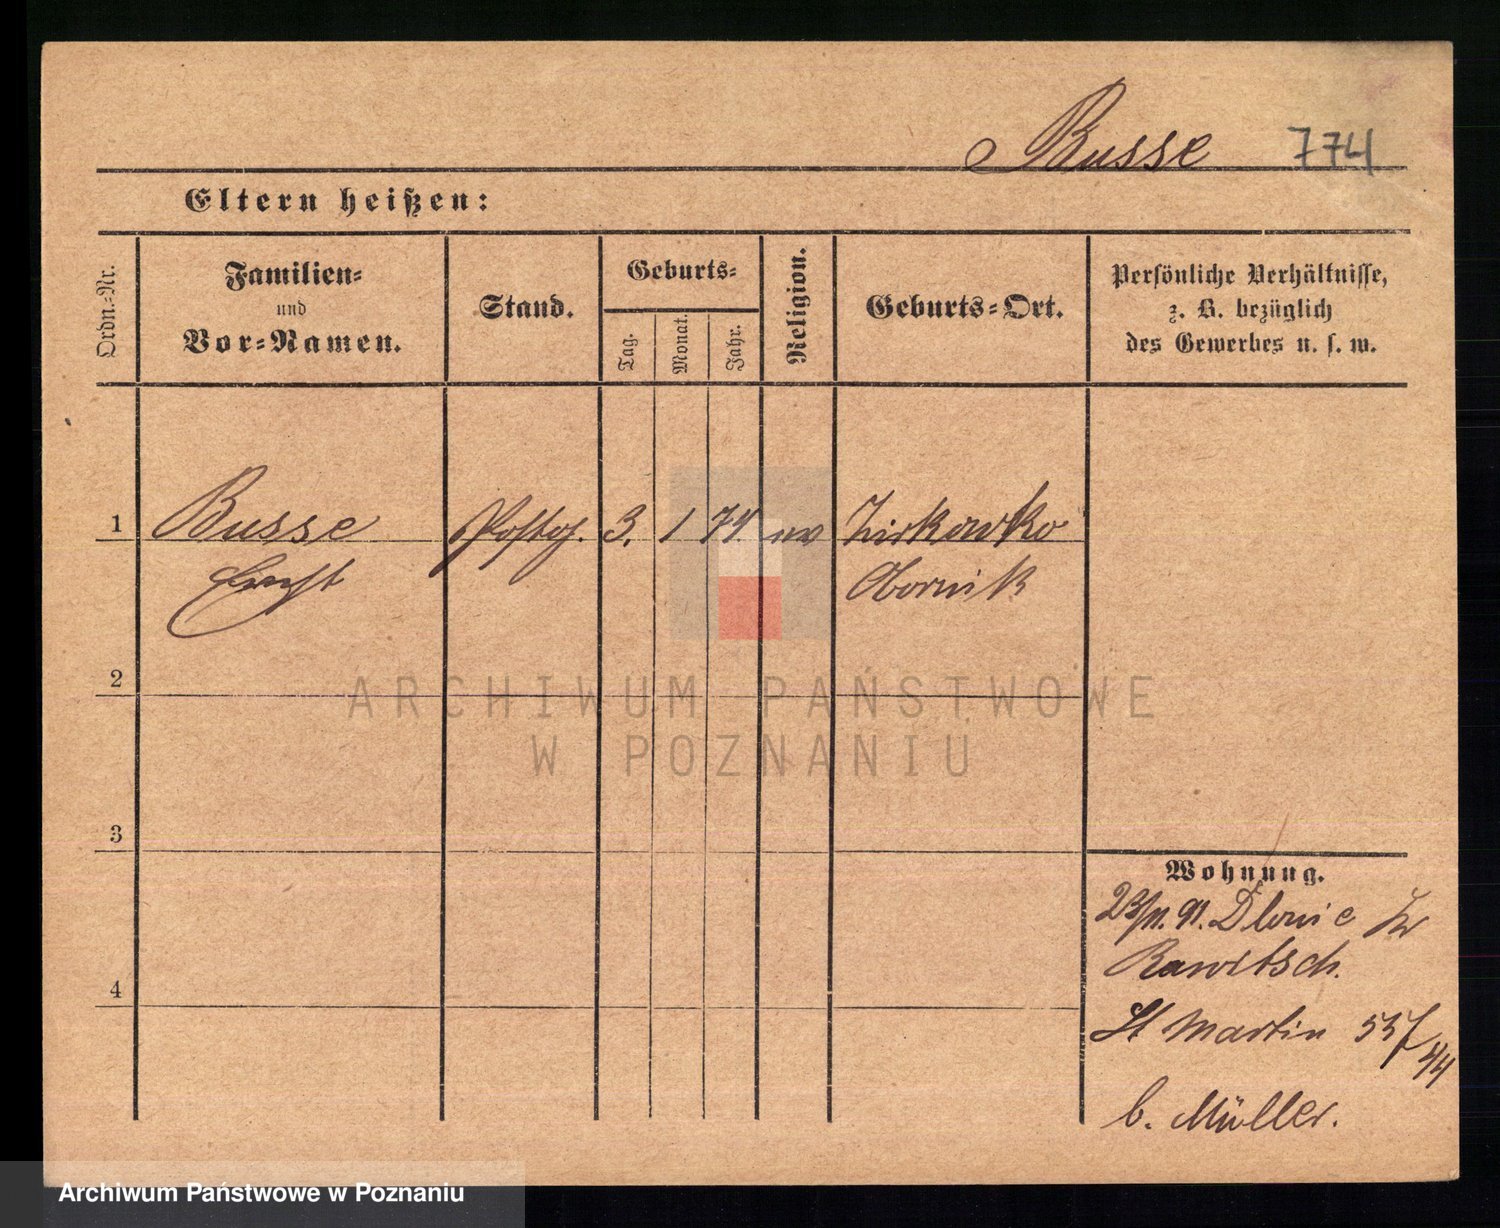 Busse 774
Eltern heißen:
Ordn.-Nr.
Familien-
und
Vor-Namen.
Stand.
Geburts-
Tag.
Monat.
Jahr.
Religion.
Geburts-Ort.
Persönliche Verhältnisse,
z. B. bezüglich
des Gewerbes u. s. w.
1 Busse 3. 1 74 ev Zirkowko
Ernst Obornik
2
3
4
Wohnung.
23/11. 91. Dlonie Kr
Rawitsch.
St Martin 55
b. Müller.
ARCHIWUM PAŃSTWOWE
W POZNANIU
Archiwum Państwowe w Poznaniu